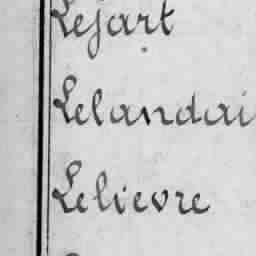 Lejart
Lelandai
Lelievre